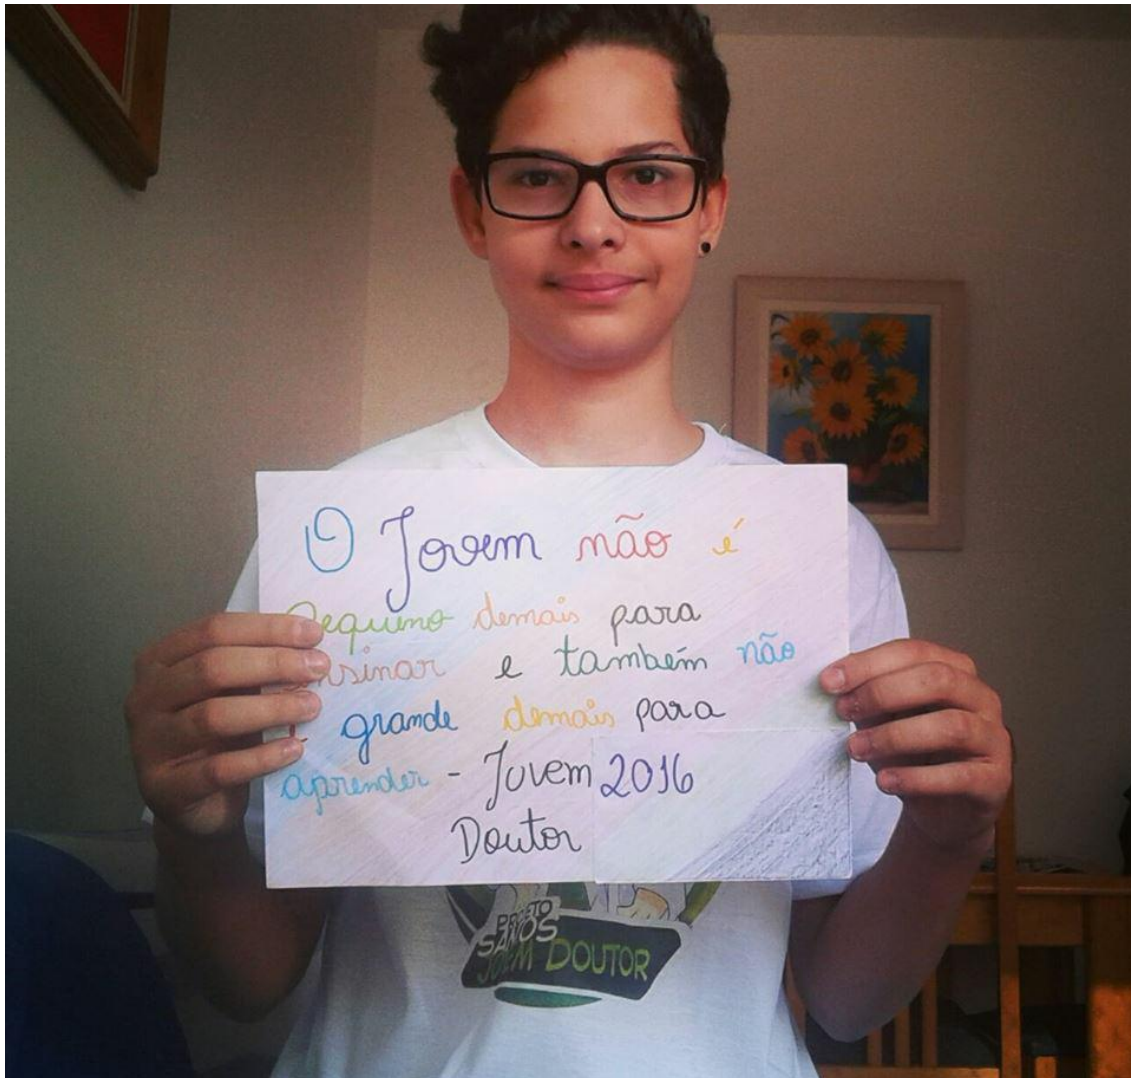 O Jovem não é
Pequeno demais para
ensinar e também não
é grande demais para
aprender - Jovem 2016
Doutor
PROJETO
SANOS
JOVEM DOUTOR